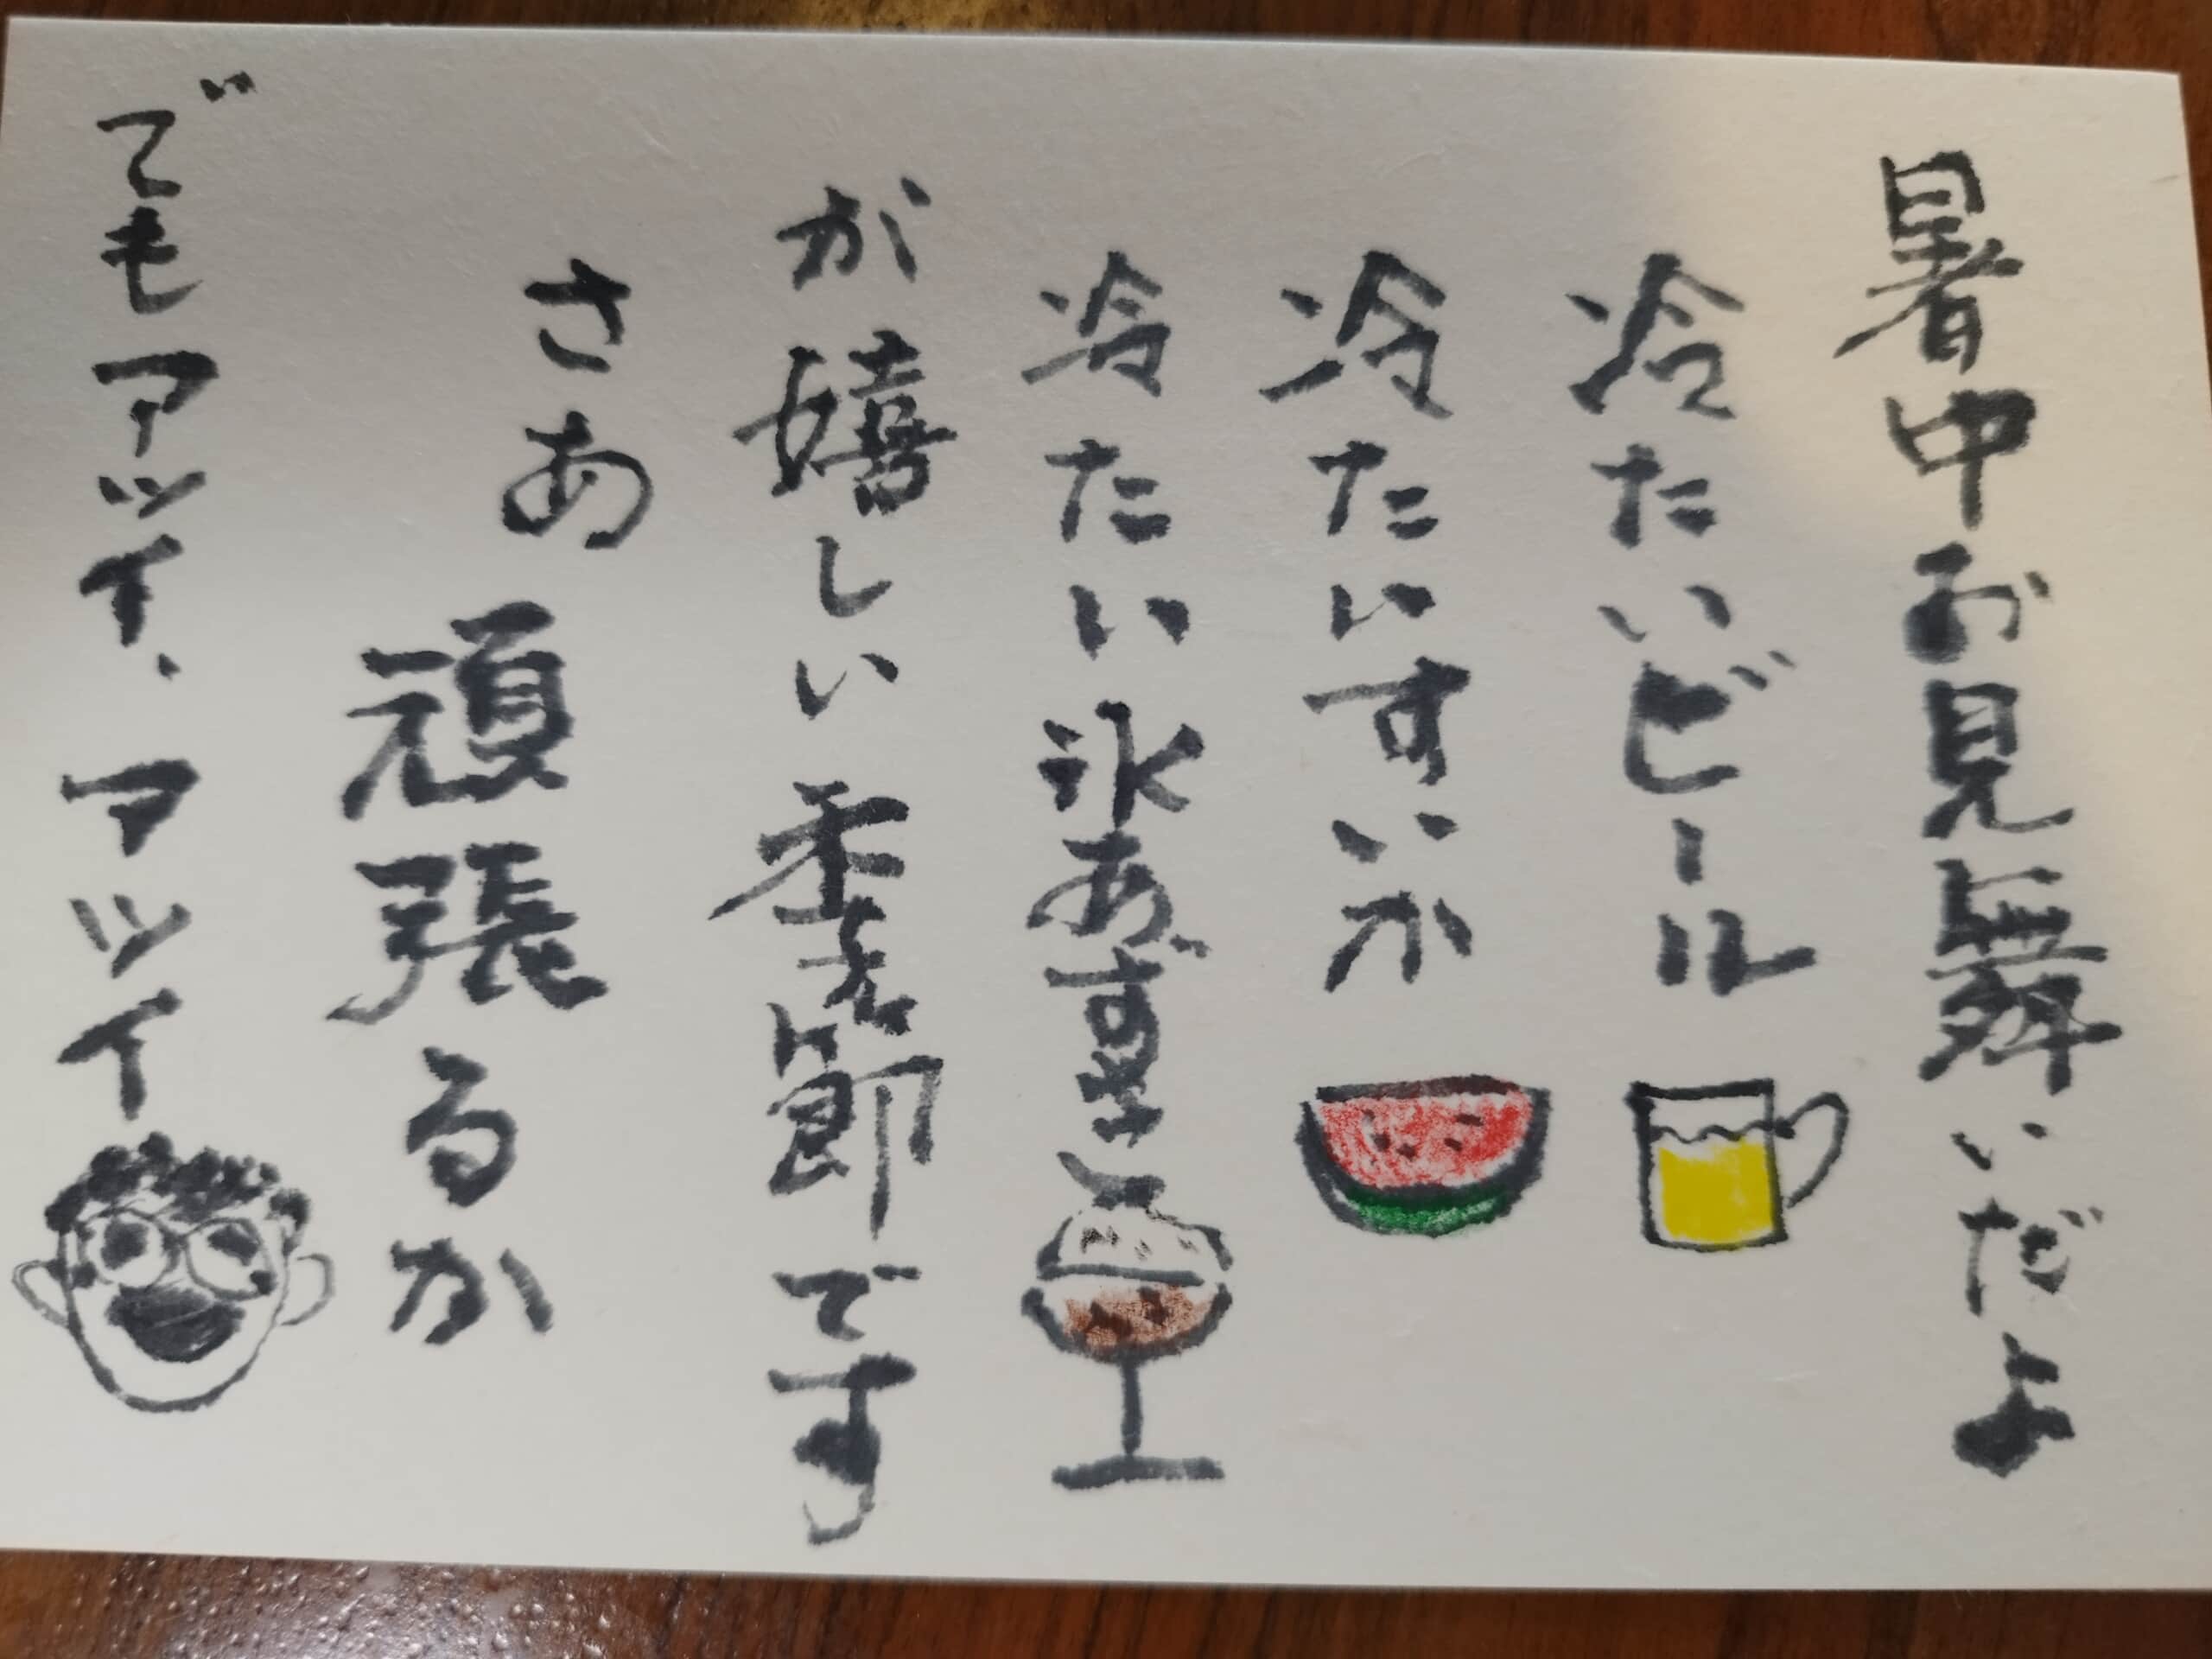 暑中お見舞いだよ
冷たいビール
冷たいすいか
冷たい氷あずき
が嬉しい季節です
さあ頑張るか
でもアツイ、アツイ